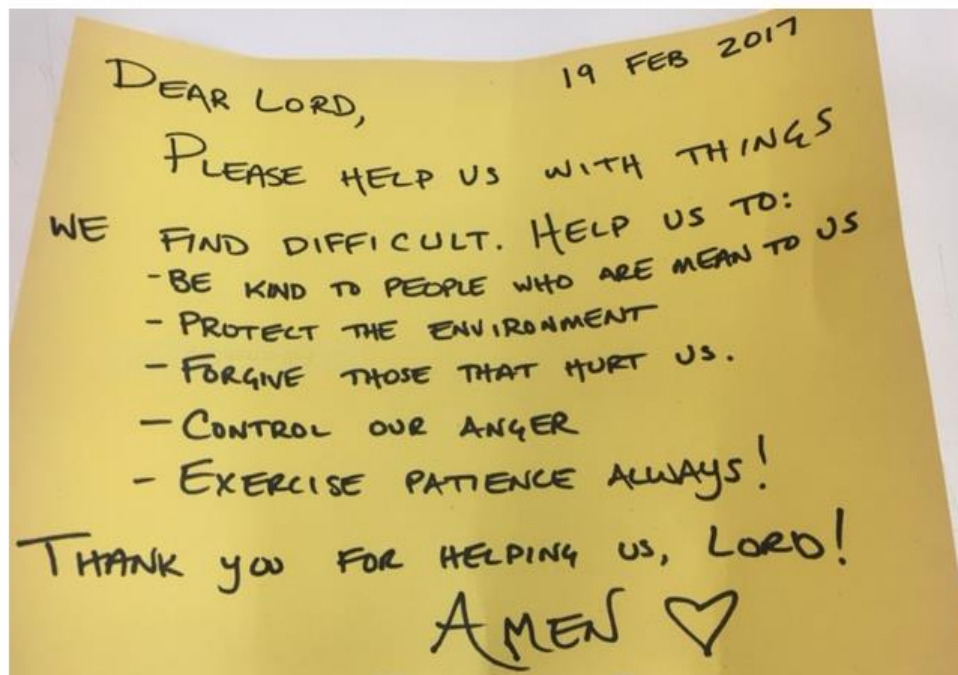 19 FEB 2017
DEAR LORD,
PLEASE HELP US WITH THINGS
WE FIND DIFFICULT. HELP US TO:
- BE KIND TO PEOPLE WHO ARE MEAN TO US
- PROTECT THE ENVIRONMENT
- FORGIVE THOSE THAT HURT US.
- CONTROL OUR ANGER
- EXERCISE PATIENCE ALWAYS!
THANK YOU FOR HELPING US, LORD!
AMEN ♡